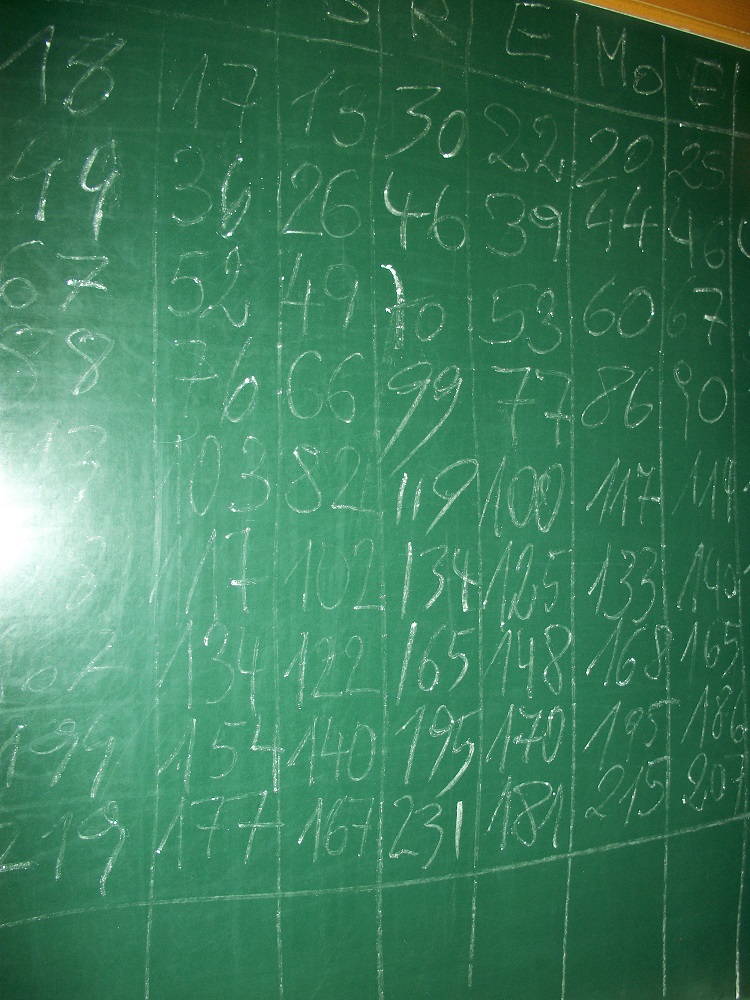 S R E Mo E
18 17 13 30 22 20 25
49 36 26 46 39 44 46
67 52 49 70 53 60 67
88 76 66 99 77 86 90
103 82 119 100 117 114
117 102 134 125 133 140
134 122 165 148 168 165
199 154 140 195 170 195 186
219 177 167 231 181 215 207